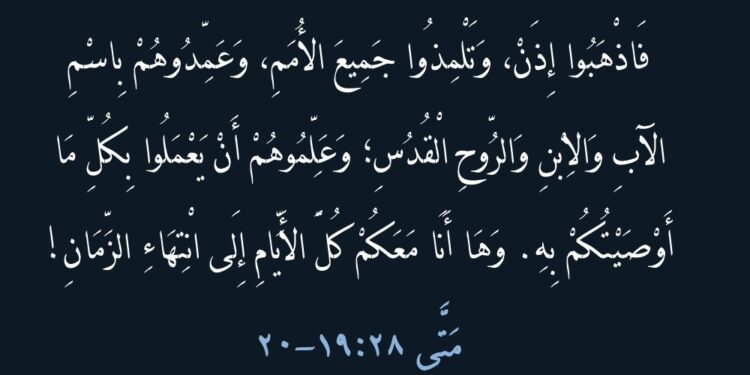 فَاذْهَبُوا إِذَنْ، وَتَلْمِذُوا جَمِيعَ الأُمَمِ، وَعَمِّدُوهُمْ بِاسْمِ
الآبِ وَالاِبْنِ وَالرُّوحِ الْقُدُسِ؛ وَعَلِّمُوهُمْ أَنْ يَعْمَلُوا بِكُلِّ مَا
أَوْصَيْتُكُمْ بِهِ. وَهَا أَنَا مَعَكُمْ كُلَّ الأَيَّامِ إِلَى انْتِهَاءِ الزَّمَانِ!
مَتَّى ٢٨:١٩–٢٠